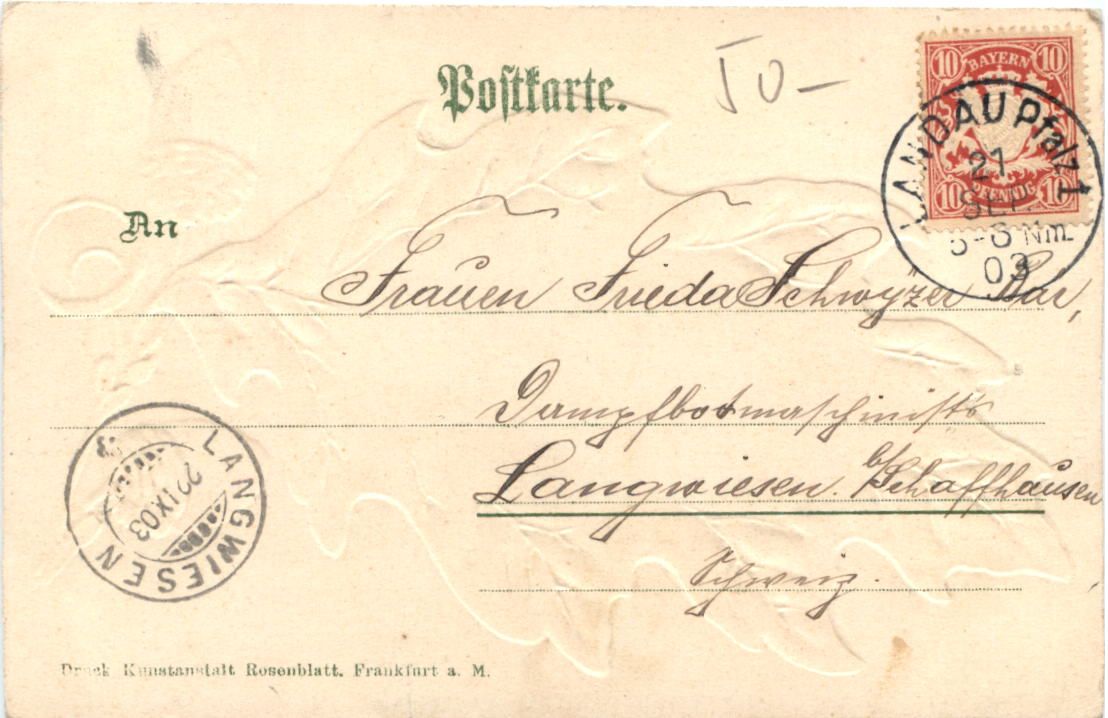 Postkarte.
50-
10 BAYERN 10
10 PFENNIG 10
LANDAU Pfalz 1
21
SEP.
5-6 Nm.
03
An
Frauen Frieda Schwyzer
Dampfbotmaschinist's
Langwiesen. b/Schaffhausen
Schweiz.
LANGWIESEN
22 IX 03
Druck Kunstanstalt Rosenblatt. Frankfurt a. M.